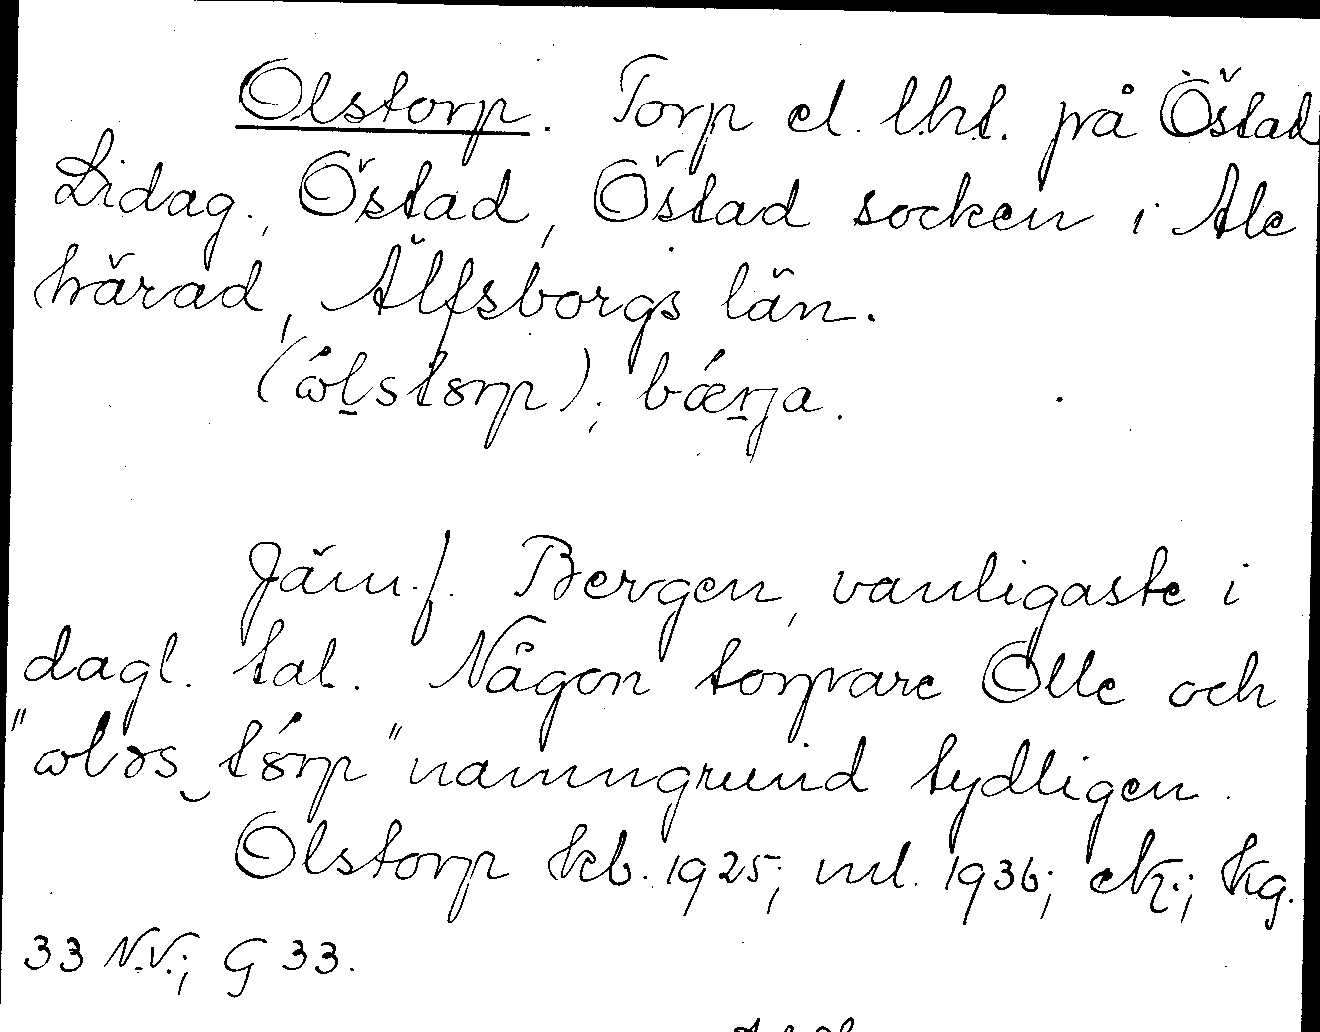 Olstorp. Torp el. lht. på Östad
Lidag., Östad, Östad socken i Ale
härad, Älfsborgs län.
(ώl̠stɔrp); bǽrja.
Jämf. Bergen, vanligaste i
dagl. tal. Någon torpare Olle och
"ωləs‿tɔ́rp" namngrund tydligen.
Olstorp kb. 1925; ml. 1936; ek.; kg.
33 N.V.; G 33.